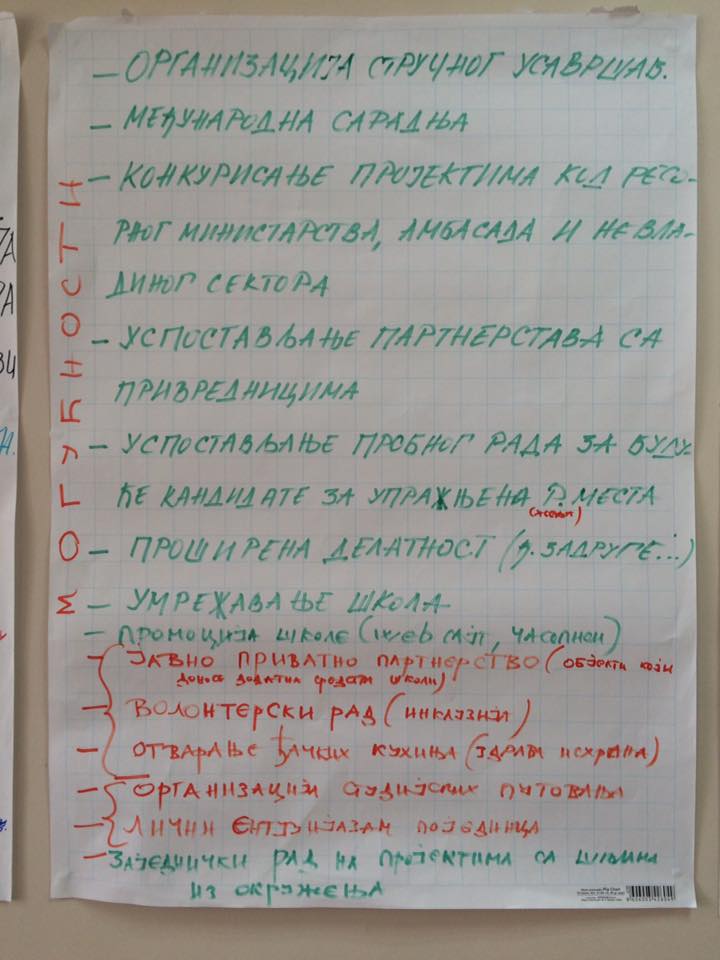 МОГУЋНОСТИ
– ОРГАНИЗАЦИЈА СТРУЧНОГ УСАВРШАВ.
– МЕЂУНАРОДНА САРАДЊА
– КОНКУРИСАЊЕ ПРОЈЕКТИМА КОД РЕСО-
РНОГ МИНИСТАРСТВА, АМБАСАДА И НЕВЛА-
ДИНОГ СЕКТОРА
– УСПОСТАВЉАЊЕ ПАРТНЕРСТАВА СА
ПРИВРЕДНИЦИМА
– УСПОСТАВЉАЊЕ ПРОБНОГ РАДА ЗА БУДУ-
ЋЕ КАНДИДАТЕ ЗА УПРАЖЊЕНА Р. МЕСТА
– ПРОШИРЕНА ДЕЛАТНОСТ (ЗАДРУГЕ...)
– УМРЕЖАВАЊЕ ШКОЛА
– ПРОМОЦИЈА ШКОЛЕ (WEB САЈТ, ЧАСОПИСИ)
– ЈАВНО ПРИВАТНО ПАРТНЕРСТВО (ОБЈЕКТИ КОЈИ
ДОНОСЕ ШКОЛИ)
– ВОЛОНТЕРСКИ РАД (ИНКЛУЗИЈА)
– ОТВАРАЊЕ ЂАЧКИХ КУХИЊА (ЗДРАВА ИСХРАНА)
– ОРГАНИЗАЦИЈА СТУДИЈСКИХ ПУТОВАЊА
– ЛИЧНИ ЕНТУЗИЈАЗАМ ПОЈЕДИНЦА
– ЗАЈЕДНИЧКИ РАД НА ПРОЈЕКТИМА СА ШКОЛАМА
ИЗ ОКРУЖЕЊА